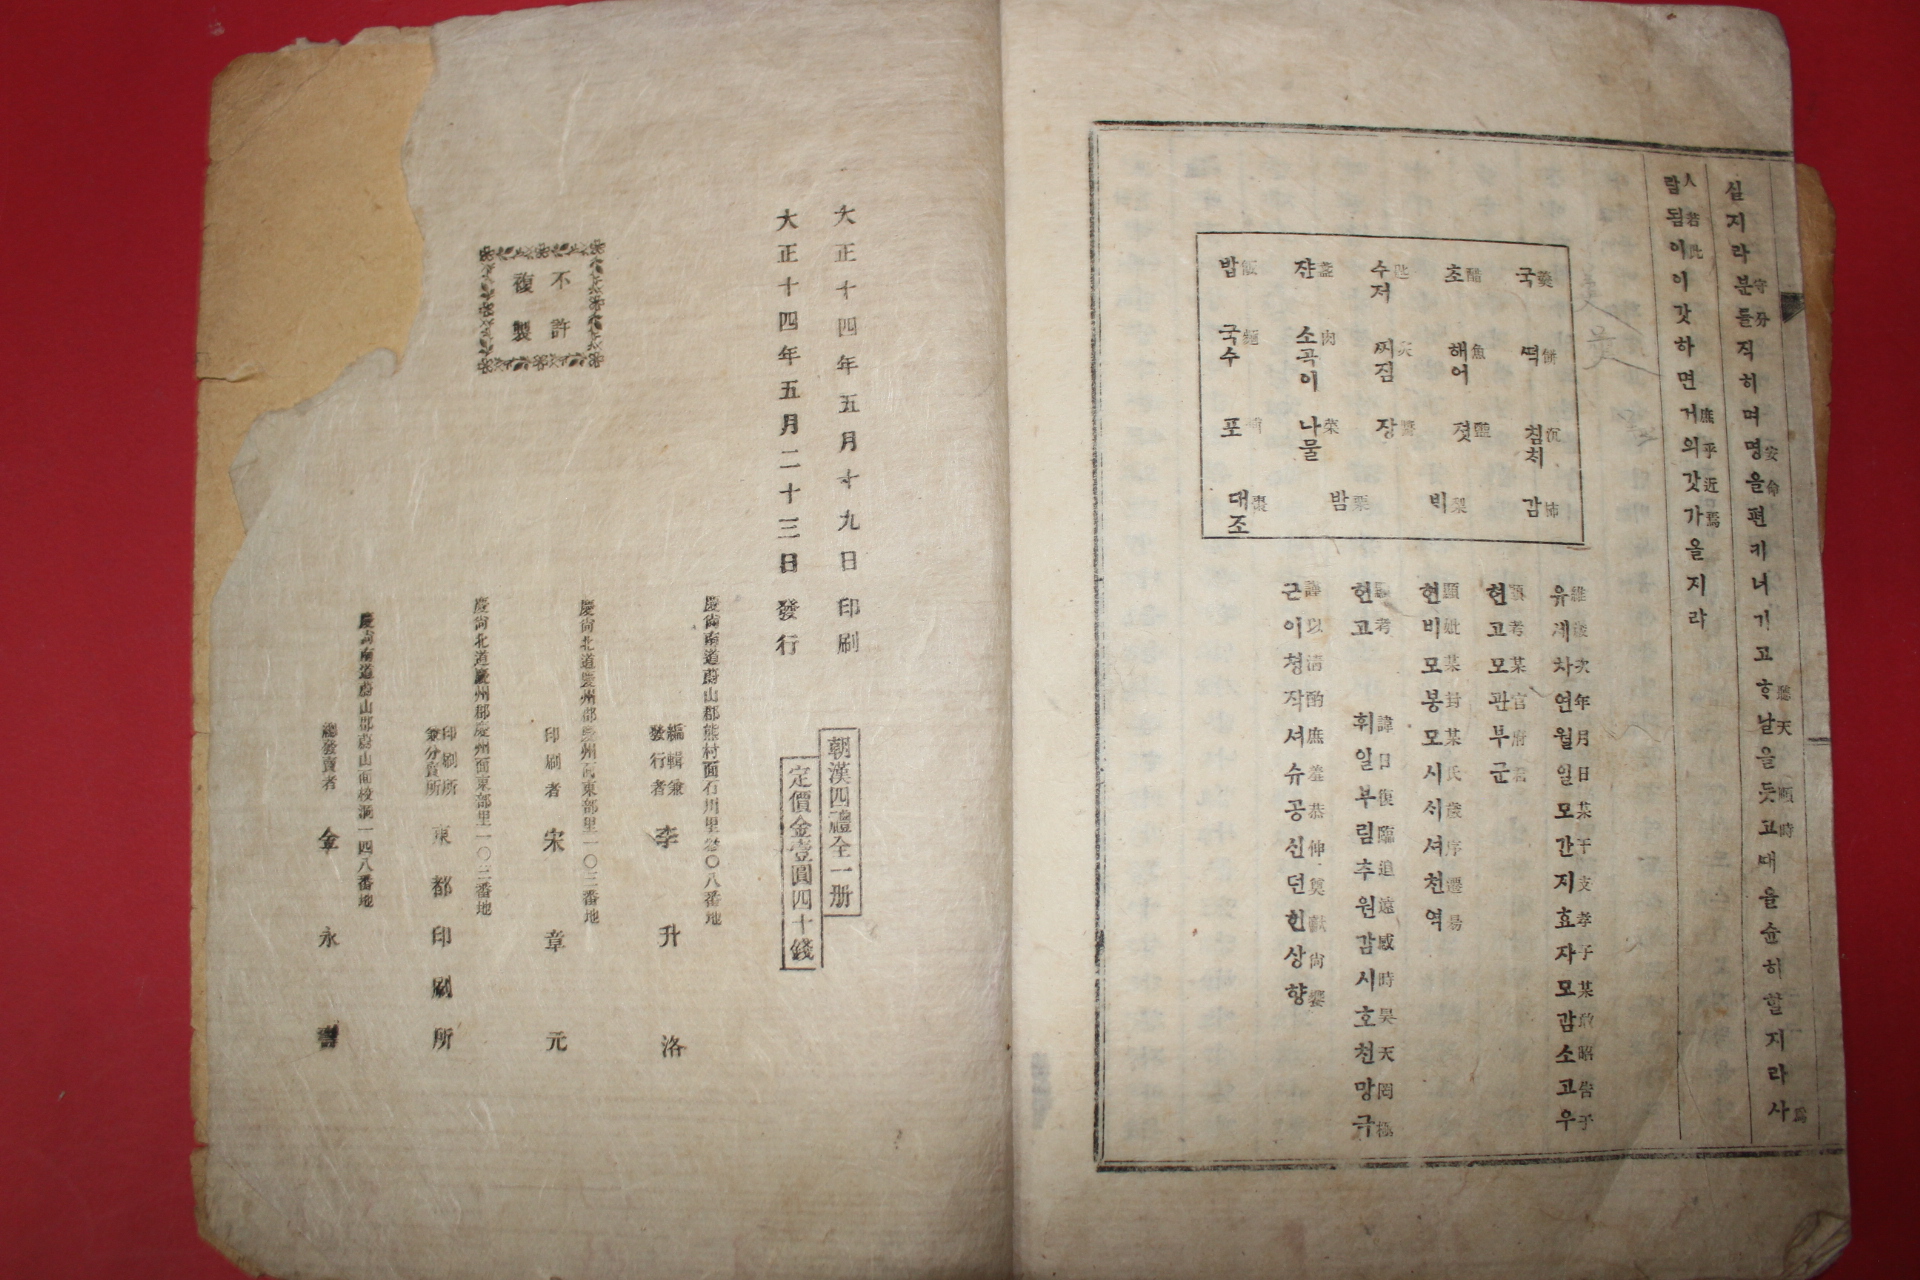 실지라분들직히며명을편키녀기고흐날을듯고때을슌히할지라사
守分 安命 聽天 順時 爲
람됨이이갓하면거의갓가올지라
人若此 庶乎近焉
국羹 초醋 수저匙 쟌盞 밥飯
떡餠 해어魚 찌짐炙 소곡이肉 국수麵
침치沉 젓醢 장醬 나물菜 포脯
감柿 비梨 밤栗 대조棗
유셰차연월일모간지효자모감소고우
維歲次年月日某干支孝子某敢昭告于
현고모관부군
顯考某官府君
현비모봉모시시셔천역
顯妣某封某氏歲序遷易
현고 휘일부림추원감시호천망극
顯考 諱日復臨追遠感時昊天罔極
근이쳥작셔슈공신뎐헌상향
謹以淸酌庶羞恭伸奠獻尙饗
大正十四年五月十九日印刷
大正十四年五月二十三日發行
不許
複製
朝漢四禮全一册
定價金壹圓四十錢
慶尙南道蔚山郡熊村面石川里 〇八番地
編輯兼
發行者 李升洛
慶尙北道慶州郡慶州面東部里一〇三番地
印刷者 宋章元
慶尙北道慶州郡慶州面東部里一〇三番地
印刷所
兼分賣所 東都印刷所
慶尙南道蔚山郡蔚山面校洞一四八番地
總發賣者 金永